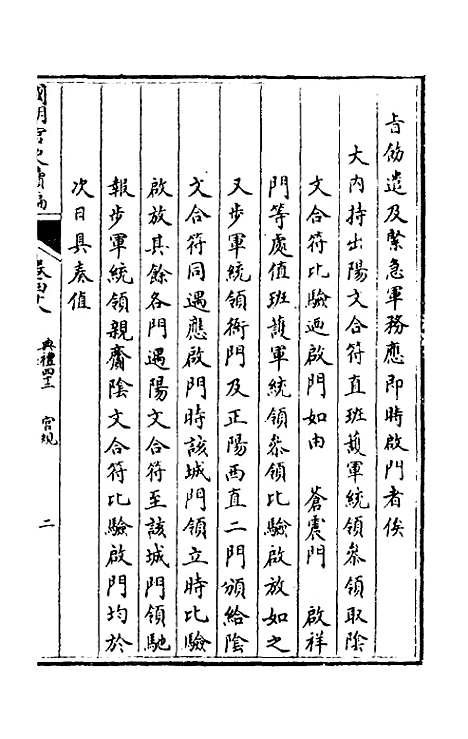 旨飭遣及緊急軍務應即時啟門者俟
大内持出陽文合符直班護軍統領叅領取隂
文合符比驗過啟門如由　蒼震門　啟祥
門等處值班護軍統領叅領比驗啟放如之
又步軍統領衙門及正陽西直二門頒給隂
文合符同遇應啟門時該城門領立時比驗
啟放其餘各門遇陽文合符至該城門領馳
報步軍統領親齎隂文合符比驗啟門均於
次日具奏值
國朝宮史續編
卷四十八
典禮四十二　宮規
二